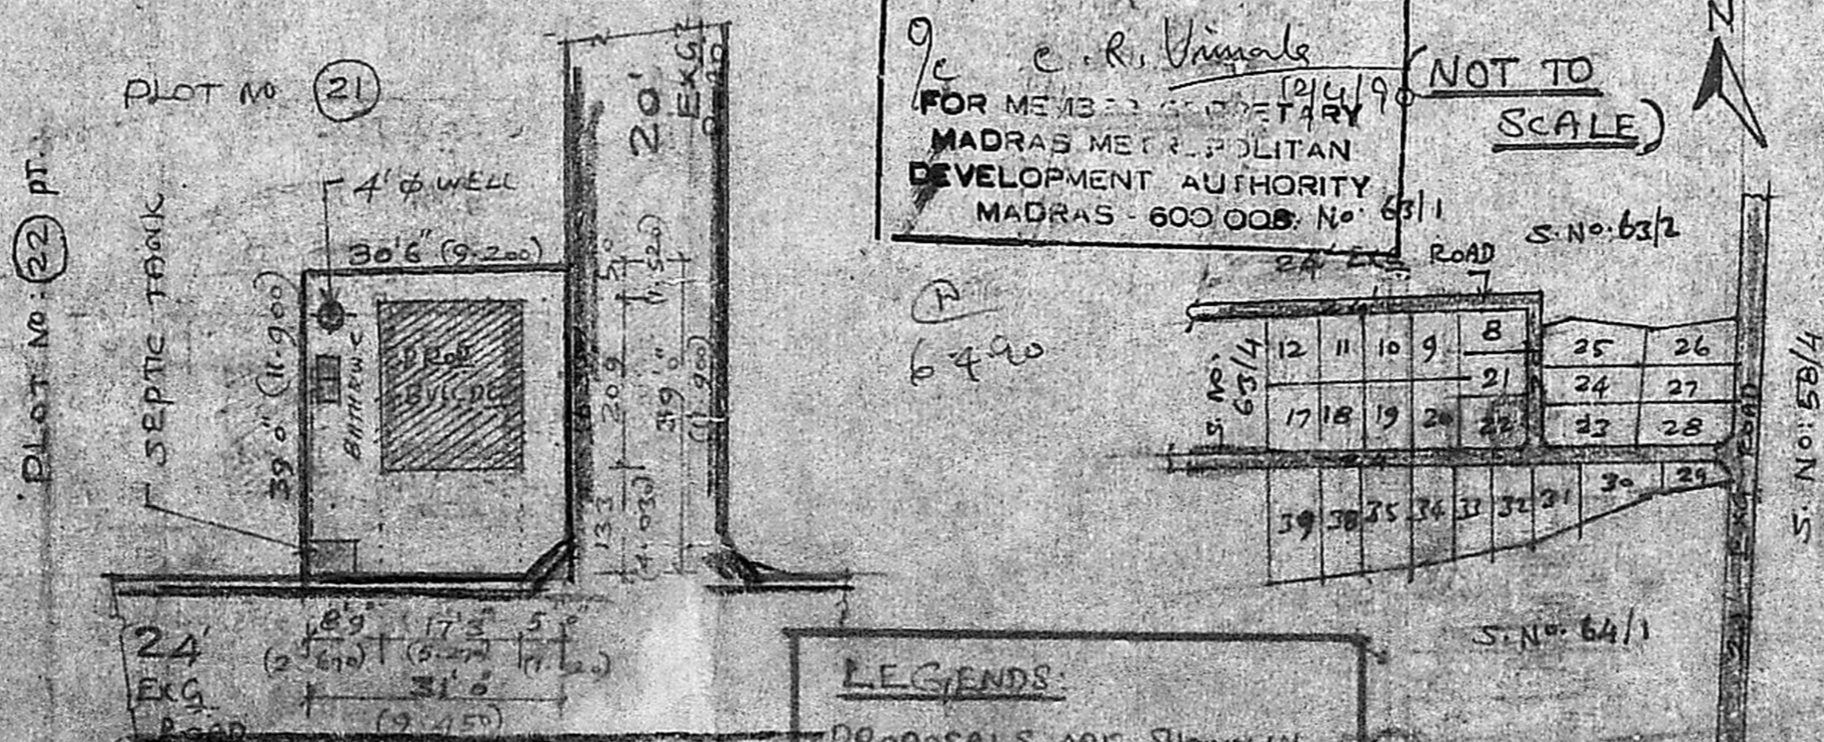 PLOT NO 21
PLOT NO: 22 PT.
SEPTIC TANK
4' ϕ WELL
30'6" (9.200)
39'0" (11.900)
BATH & WC
PROP
BUILDG
20'
EXG
ROAD
5'0"
(1.520)
20'9
39'0"
(11.900)
13'3
(4.030)
8'9" 17'3" 5'0"
(2.670) (5.270) (1.520)
31'0"
(9.450)
24'
EXG
ROAD
C. R. Vimala
12/4/90
FOR MEMBER SECRETARY
MADRAS METROPOLITAN
DEVELOPMENT AUTHORITY
MADRAS - 600 008.
S. No: 63/1
(NOT TO
SCALE)
N
6-4-90
S. No: 63/2
24' EXG ROAD
S. No: 63/4
12 11 10 9 8
21
17 18 19 20 22
25 26
24 27
23 28
24
39 38 35 34 33 32 31 30 29
24' EXG ROAD
S. No: 58/4
S. No. 64/1
LEGENDS:
PROPOSALS ARE SHOWN IN